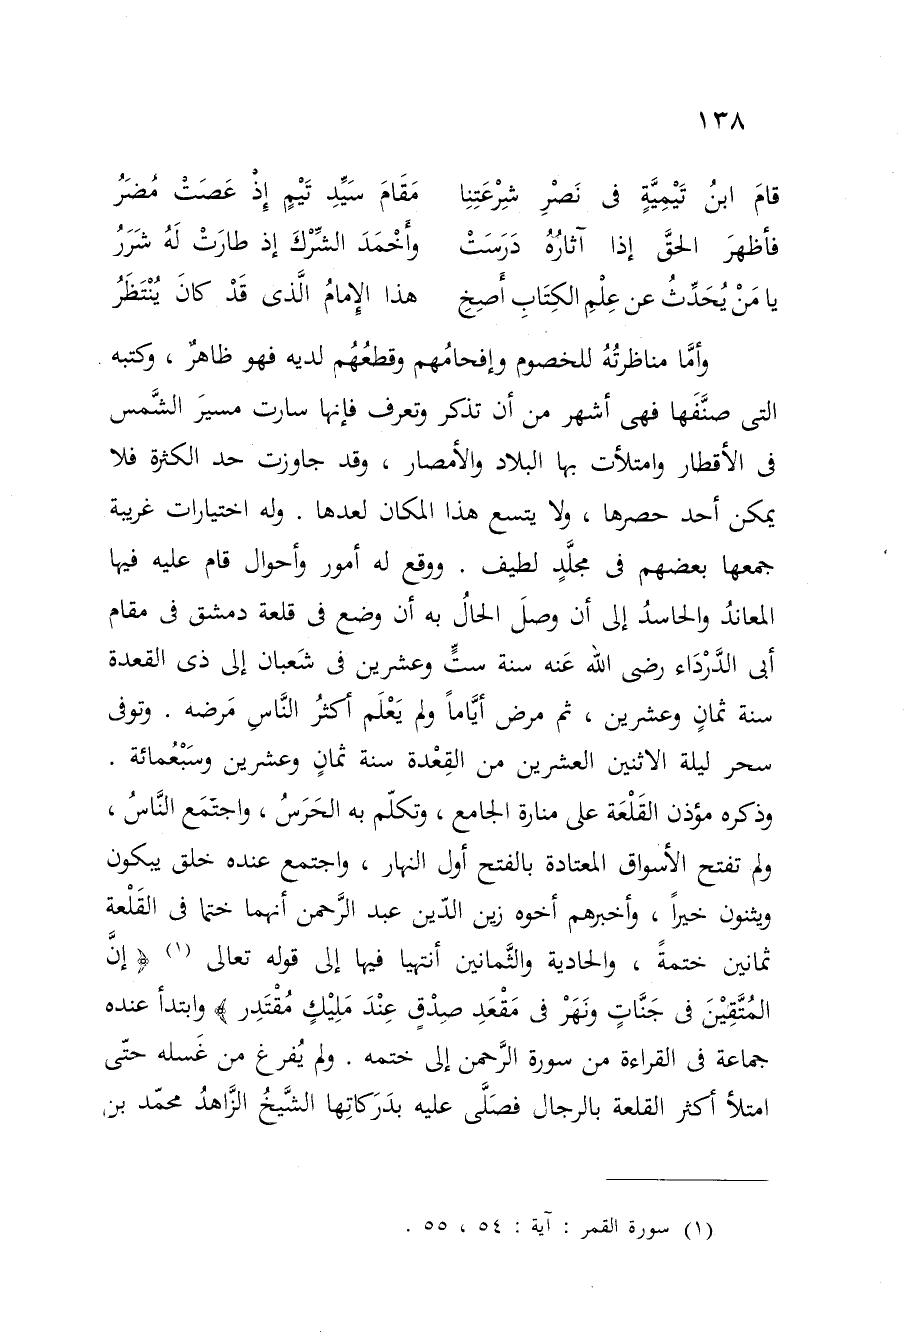 ١٣٨
قامَ ابنُ تَيْمِيَّةٍ فى نَصْرِ شِرْعَتِنا مَقَامَ سَيِّدِ تَيْمٍ إِذْ عَصَتْ مُضَرُ
فأظهرَ الحقَّ إذا آثارُهُ دَرَسَتْ وأَخْمَدَ الشِّرْكَ إذ طارَتْ لَهُ شَرَرُ
يا مَنْ يُحَدِّثُ عن عِلْمِ الكِتَابِ أَصِخِ هذا الإِمامُ الَّذى قَدْ كانَ يُنْتَظَرُ
وأمَّا مناظرتُهُ للخصوم وإفحامُهم وقطعُهُم لديه فهو ظاهرٌ ، وكتبه
التى صنَّفَها فهى أشهر من أن تذكر وتعرف فإنها سارت مسيرَ الشَّمس
فى الأقطار وامتلأت بها البلاد والأمصار ، وقد جاوزت حد الكثرة فلا
يمكن أحد حصرها ، ولا يتسع هذا المكان لعدها . وله اختيارات غريبة
جمعها بعضهم فى مجلَّدٍ لطيف . ووقع له أمور وأحوال قام عليه فيها
المعاندُ والحاسدُ إلى أن وصلَ الحالُ به أن وضع فى قلعة دمشق فى مقام
أبى الدَّرْدَاء رضى الله عَنه سنة ستٍّ وعشرين فى شَعبان إلى ذى القعدة
سنة ثمانٍ وعشرين ، ثم مرض أيَّاماً ولم يَعْلَم أكثرُ النَّاسِ مَرضه . وتوفى
سحر ليلة الاثنين العشرين من القِعْدة سنة ثمانٍ وعشرين وسَبْعُمائة .
وذكره مؤذن القَلْعَة على منارة الجامع ، وتكلّم به الحَرَسُ ، واجتمَع النَّاسُ ،
ولم تفتح الأسواق المعتادة بالفتح أول النهار ، واجتمع عنده خلق يبكون
ويثنون خيراً ، وأخبرهم أخوه زين الدّين عبد الرَّحمن أنهما ختما فى القَلْعة
ثمانين ختمةً ، والحادية والثَّمانين أنتهيا فيها إلى قوله تعالى (١) ﴿ إنَّ
المُتَّقِيْنَ فى جَنَّاتٍ ونَهَرْ فى مَقْعَدِ صِدْقٍ عِنْدَ مَلِيْكٍ مُقْتَدِر ﴾ وابتدأ عنده
جماعة فى القراءة من سورة الرَّحمن إلى ختمه . ولم يُفرغ من غَسله حتّى
امتلأ أكثر القلعة بالرجال فصَلَّى عليه بدَرَكاتِها الشَّيخُ الزَّاهدُ محمّد بن
(١) سورة القمر : آية : ٥٤ ، ٥٥ .